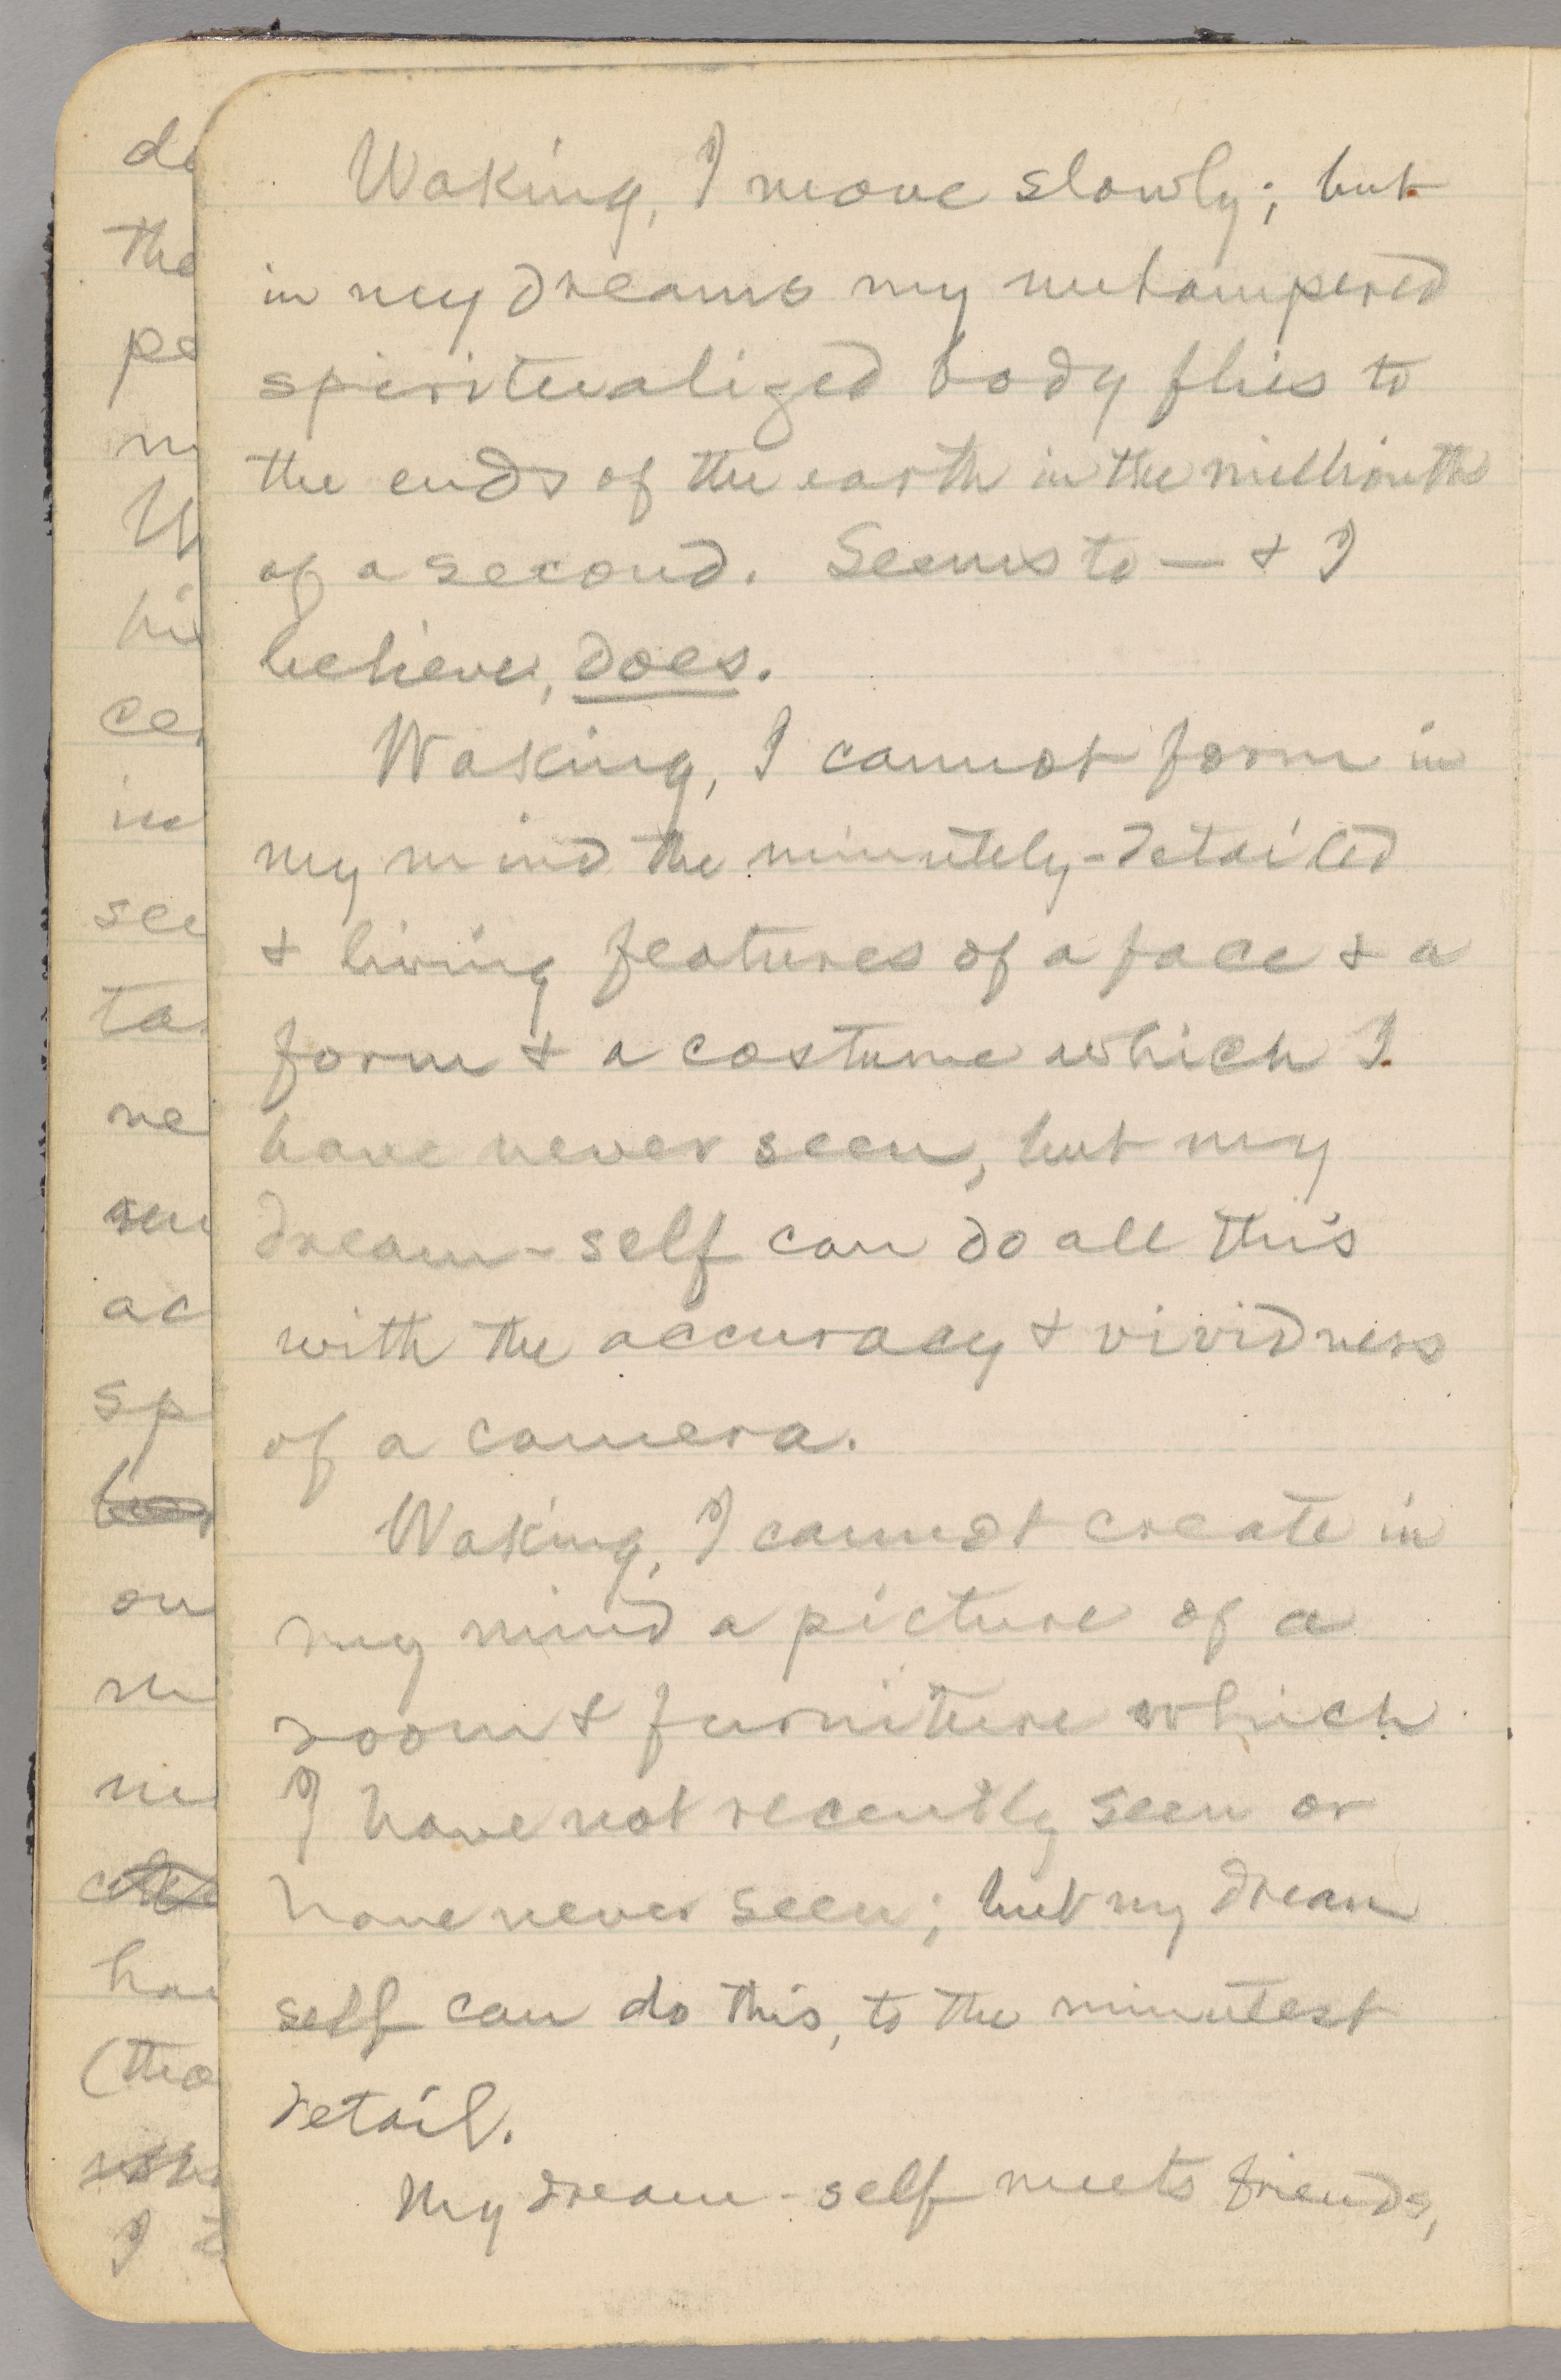 Waking, I move slowly; but
in my dreams my unhampered
spiritualized body flies to
the ends of the earth in the millionth
of a second. Seems to — & I
believe, does.
Waking, I cannot form in
my mind the minutely-detailed
& living features of a face & a
form & a costume which I
have never seen, but my
dream-self can do all this
with the accuracy & vividness
of a camera.
Waking, I cannot create in
my mind a picture of a
room & furniture which
I have not recently seen or
have never seen; but my dream
self can do this, to the minutest
detail.
My dream-self meets friends,